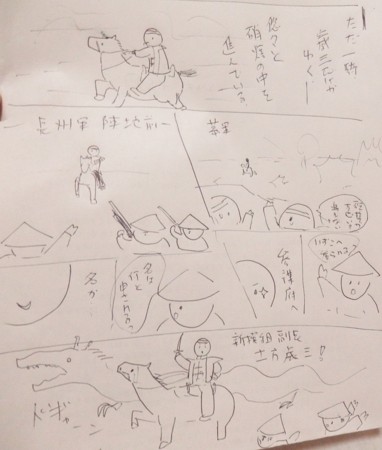 ただ一騎
歳三だけが
ゆく―
悠々と
硝煙の中を
進んでいる
幕軍
長州軍 陣地前―
いずこへ
参られる?
参謀府へ
名は
何と
申される?
名か
新撰組副長
土方歳三!
ドギャーン